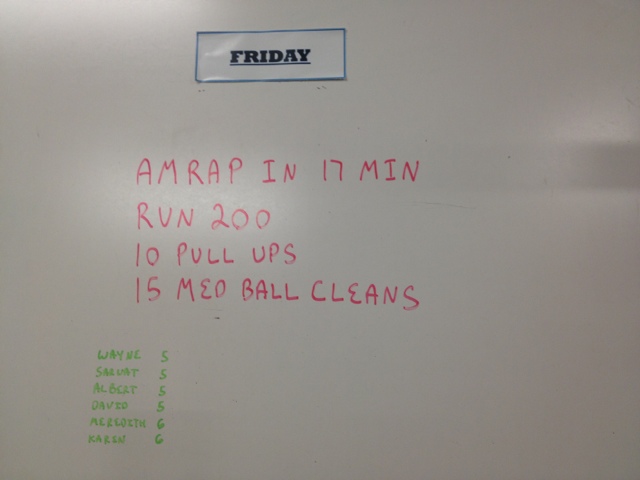 FRIDAY
AMRAP IN 17 MIN
RUN 200
10 PULL UPS
15 MED BALL CLEANS
WAYNE 5
SARVAT 5
ALBERT 5
DAVID 5
MEREDITH 6
KAREN 6